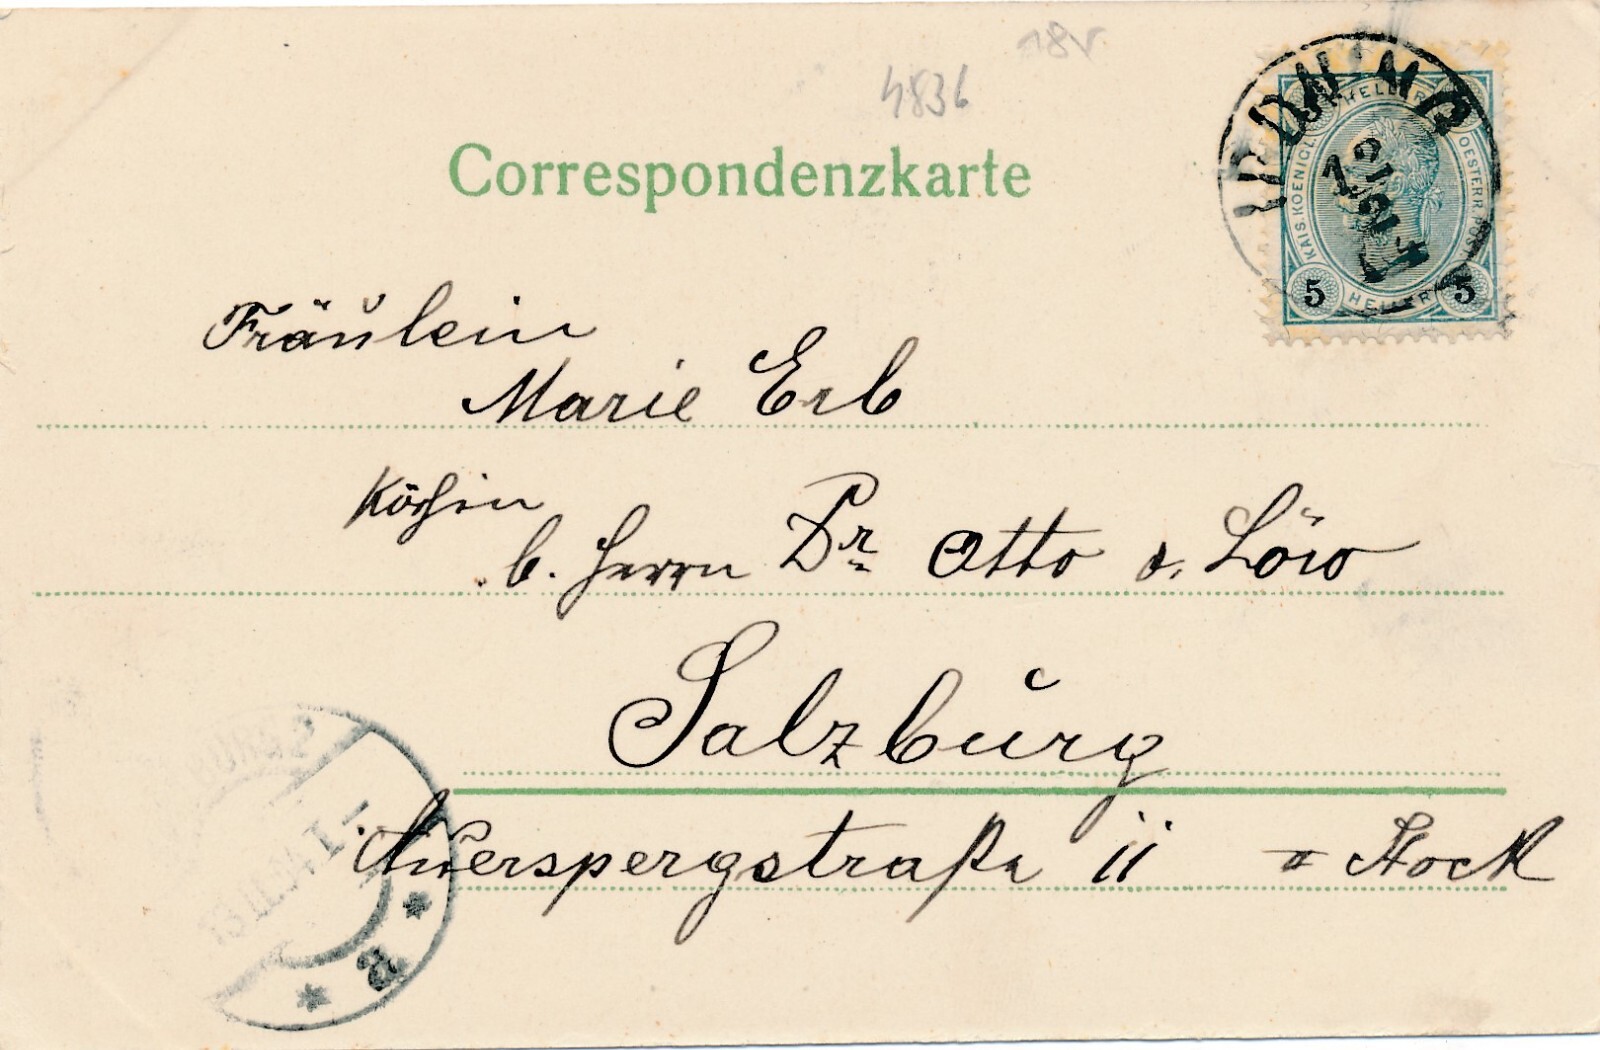 4836
Correspondenzkarte
KAIS. KOENIGL. OESTERR. POST
5 HELLER 5
Fräulein
Marie Erb
Köchin
b. Herrn Dr Otto v. Löw
Salzburg
Auerspergstraße 11 Stock
13.II.04
* a *